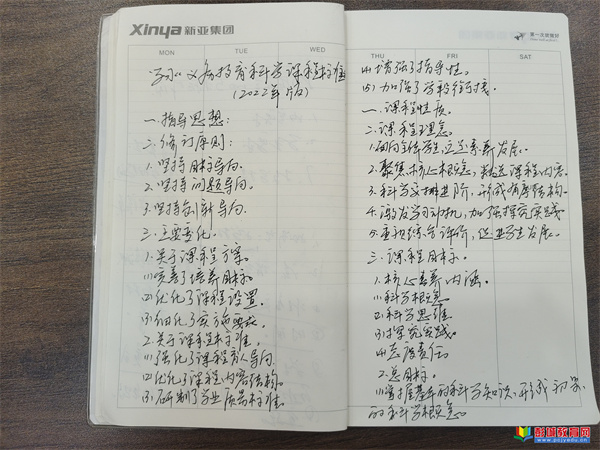 Xinya 新亚集团
MON TUE WED
学习义务教育科学课程标准
(2022年版)
一.指导思想:
二.修订原则:
1.坚持目标导向.
2.坚持问题导向.
3.坚持创新导向.
三.主要变化.
1.关于课程方案.
(1)完善了培养目标.
(2)优化了课程设置.
(3)细化了实施要求.
2.关于课程标准.
(1)强化了课程育人导向.
(2)优化了课程内容结构.
(3)研制了学业质量标准.
第一点就做好
THU FRI SAT
(4)增强了指导性.
(5)加强了学段衔接.
一.课程性质.
二.课程理念.
1.面向全体学生,立足素养发展.
2.聚焦核心概念,精选课程内容.
3.科学安排进阶,形成有序结构.
4.激发学习动机,加强探究实践.
5.重视综合评价,促进学生发展.
三.课程目标.
1.核心素养内涵.
(1)科学概念
(2)科学思维
(3)探究实践.
(4)态度责任
2.总目标.
(1)掌握基本的科学知识,形成初步
的科学概念.
彭城教育网